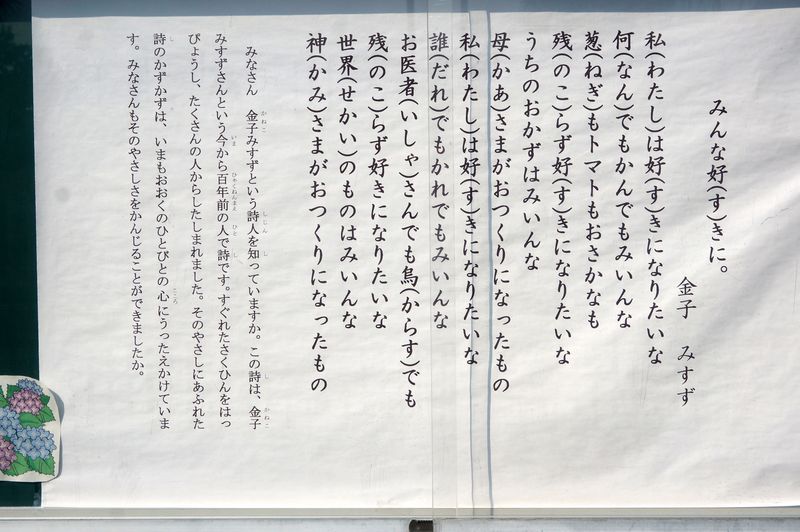 みんな好(す)きに。
金子　みすず
私(わたし)は好(す)きになりたいな
何(なん)でもかんでもみいんな
葱(ねぎ)もトマトもおさかなも
残(のこ)らず好(す)きになりたいな
うちのおかずはみいんな
母(かあ)さまがおつくりになったもの
私(わたし)は好(す)きになりたいな
誰(だれ)でもかれでもみいんな
お医者(いしゃ)さんでも烏(からす)でも
残(のこ)らず好きになりたいな
世界(せかい)のものはみいんな
神(かみ)さまがおつくりになったもの
みなさん　金子みすずという詩人を知っていますか。この詩は、金子
みすずさんという今から百年前の人で詩です。すぐれたさくひんをはっ
ぴょうし、たくさんの人からしたしまれました。そのやさしにあふれた
詩のかずかずは、いまもおおくのひとびとの心にうったえかけていま
す。みなさんもそのやさしさをかんじることができましたか。